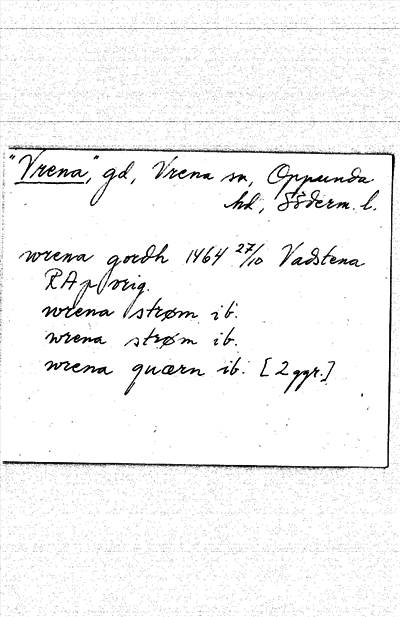 "Vrena", gd, Vrena sn, Oppunda
hd, Söderm. l.
wrena gordh 1464 27/10 Vadstena
RAp orig.
wrena strøm ib.
wrena strøm ib.
wrena quærn ib. [2 ggr.]